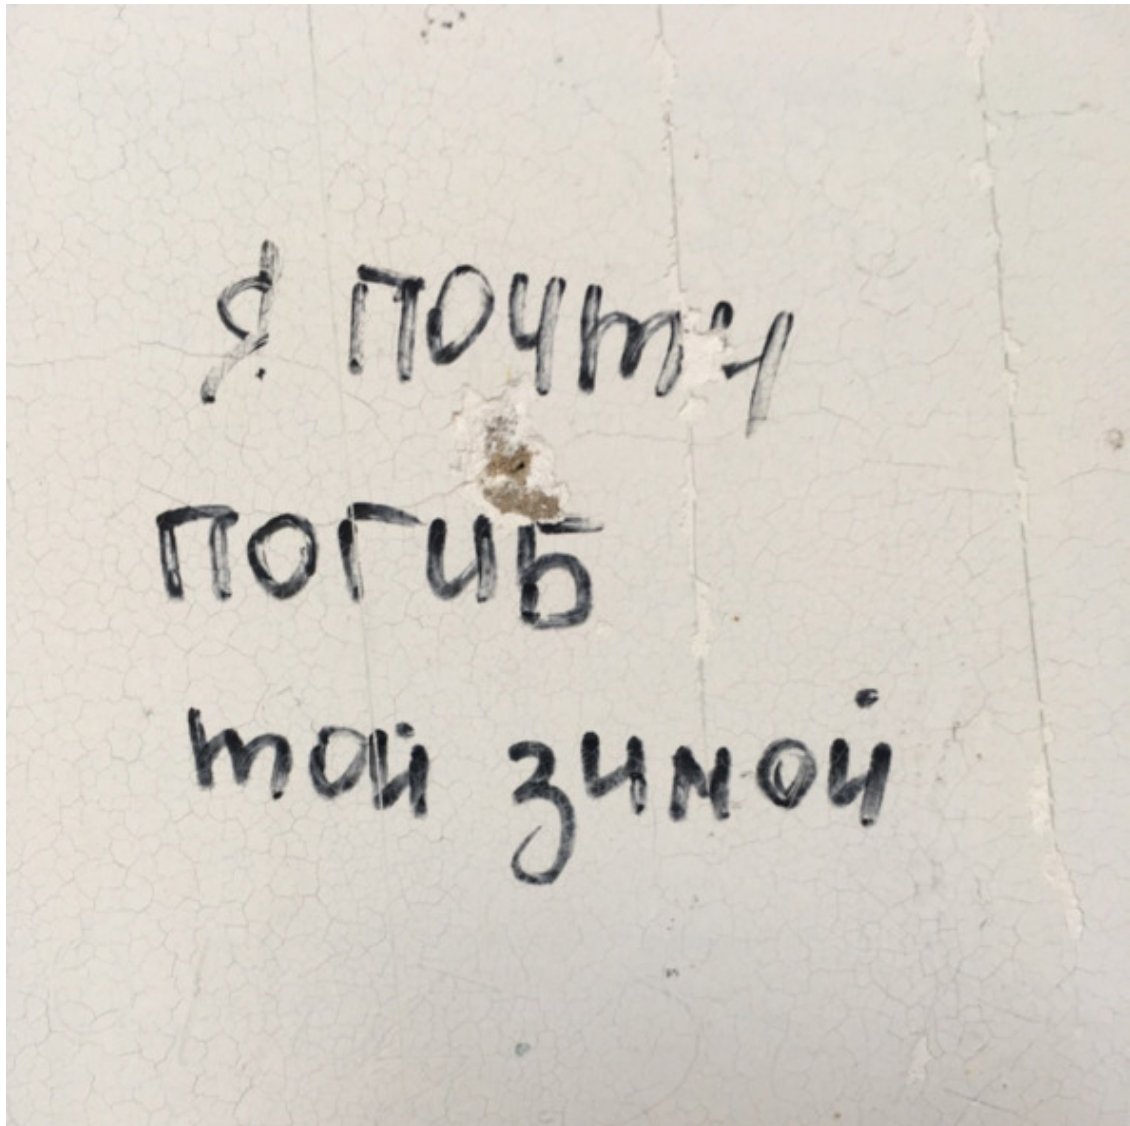 я почти
погиб
той зимой